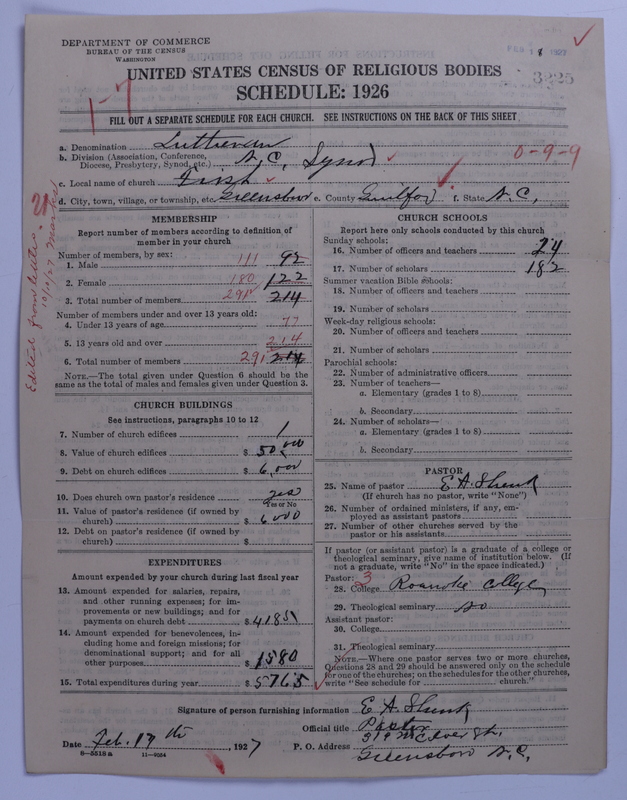 DEPARTMENT OF COMMERCE
BUREAU OF THE CENSUS
WASHINGTON
1927
3225
UNITED STATES CENSUS OF RELIGIOUS BODIES
SCHEDULE: 1926
1-7
FILL OUT A SEPARATE SCHEDULE FOR EACH CHURCH. SEE INSTRUCTIONS ON THE BACK OF THIS SHEET
a. Denomination Lutheran
b. Division (Association, Conference, Diocese, Presbytery, Synod, etc.) N.C. Synod
0-9-9
c. Local name of church First
d. City, town, village, or township, etc. Greensboro e. County Guilford f. State N.C.
Edited from letter 10/10/27
MEMBERSHIP
Report number of members according to definition of member in your church
Number of members, by sex:
1. Male 111 92
2. Female 180 122
3. Total number of members 291 214
Number of members under and over 13 years old:
4. Under 13 years of age 77
5. 13 years old and over 214
6. Total number of members 291 214
NOTE.—The total given under Question 6 should be the same as the total of males and females given under Question 3.
CHURCH BUILDINGS
See instructions, paragraphs 10 to 12
7. Number of church edifices 1
8. Value of church edifices $ 50,000
9. Debt on church edifices $ 6,000
10. Does church own pastor's residence yes
Yes or No
11. Value of pastor's residence (if owned by church) $ 6000
12. Debt on pastor's residence (if owned by church) $
EXPENDITURES
Amount expended by your church during last fiscal year
13. Amount expended for salaries, repairs, and other running expenses; for improvements or new buildings; and for payments on church debt $ 4185
14. Amount expended for benevolences, including home and foreign missions; for denominational support; and for all other purposes $ 1580
15. Total expenditures during year $ 5765
CHURCH SCHOOLS
Report here only schools conducted by this church
Sunday schools:
16. Number of officers and teachers 24
17. Number of scholars 182
Summer vacation Bible schools:
18. Number of officers and teachers
19. Number of scholars
Week-day religious schools:
20. Number of officers and teachers
21. Number of scholars
Parochial schools:
22. Number of administrative officers
23. Number of teachers—
a. Elementary (grades 1 to 8)
b. Secondary
24. Number of scholars—
a. Elementary (grades 1 to 8)
b. Secondary
PASTOR
25. Name of pastor E A. Shenk
(If church has no pastor, write "None")
26. Number of ordained ministers, if any, employed as assistant pastors
27. Number of other churches served by the pastor or his assistants
If pastor (or assistant pastor) is a graduate of a college or theological seminary, give name of institution below. (If not a graduate, write "No" in the space indicated.)
Pastor: 3
28. College Roanoke College
29. Theological seminary no
Assistant pastor:
30. College
31. Theological seminary
NOTE.—Where one pastor serves two or more churches, Questions 28 and 29 should be answered only on the schedule for one of the churches; on the schedules for the other churches, write "See schedule for church."
Signature of person furnishing information E A. Shenk
Official title Pastor
Date Feb. 17th 1927
P. O. Address 319 McIver St.
Greensboro N.C.
8-5518a 11-9054